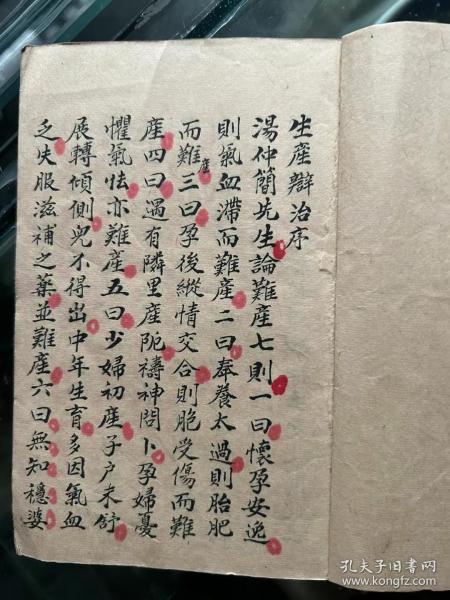 生產辯治序
湯仲簡先生論難產七則一曰懷孕安逸
則氣血滯而難產二曰奉養太過則胎肥
而難產三曰孕後縱情交合則胞受傷而難
產四曰遇有隣里產阨禱神問卜孕婦憂
懼氣怯亦難產五曰少婦初產子户未舒
展轉傾側兒不得出中年生育多因氣血
乏失服滋補之藥並難產六曰無知穩婆
孔夫子旧书网
www.kongfz.com